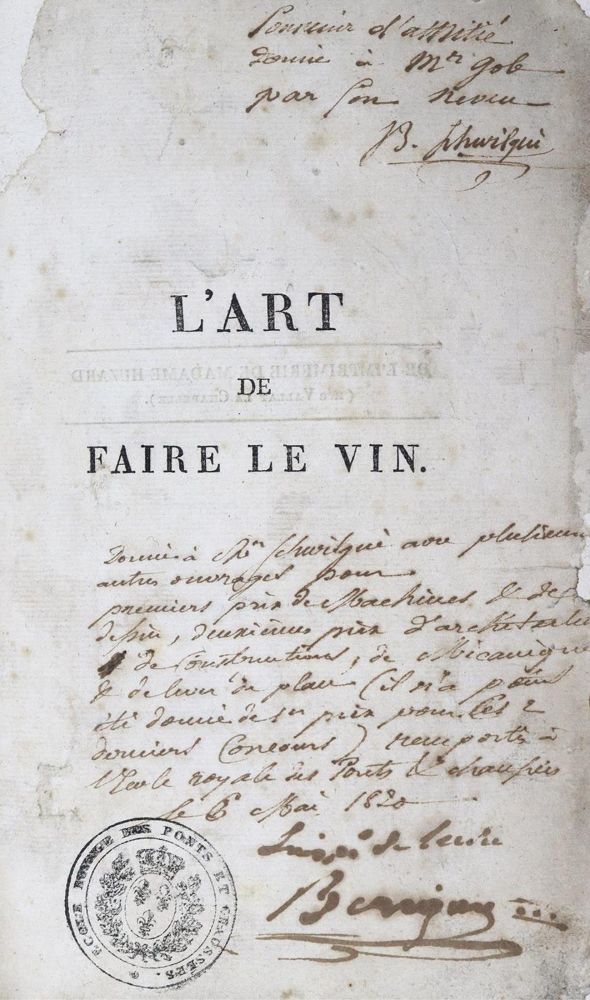 Souvenir d'amitié
Donné à Mr Gob
par son neveu
B. Schwilgué
L'ART
DE L'IMPRIMERIE DE MADAME HUZARD
DE
(née VALLAT LA CHAPELLE).
FAIRE LE VIN.
Donné à Mr Schwilgué avec plusieurs
autres ouvrages pour
premiers prix de Machines & de
dessin, deuxièmes prix d'architecture
& de Constructions, de Mécanique
& de levé de plan (il n'a point
été donné de 1er prix pour les 2
derniers Concours) remportés à
l'Ecole royale des Ponts & chaussées
le 6 Mai 1820
de
ECOLE ROYALE DES PONTS ET CHAUSSÉES.